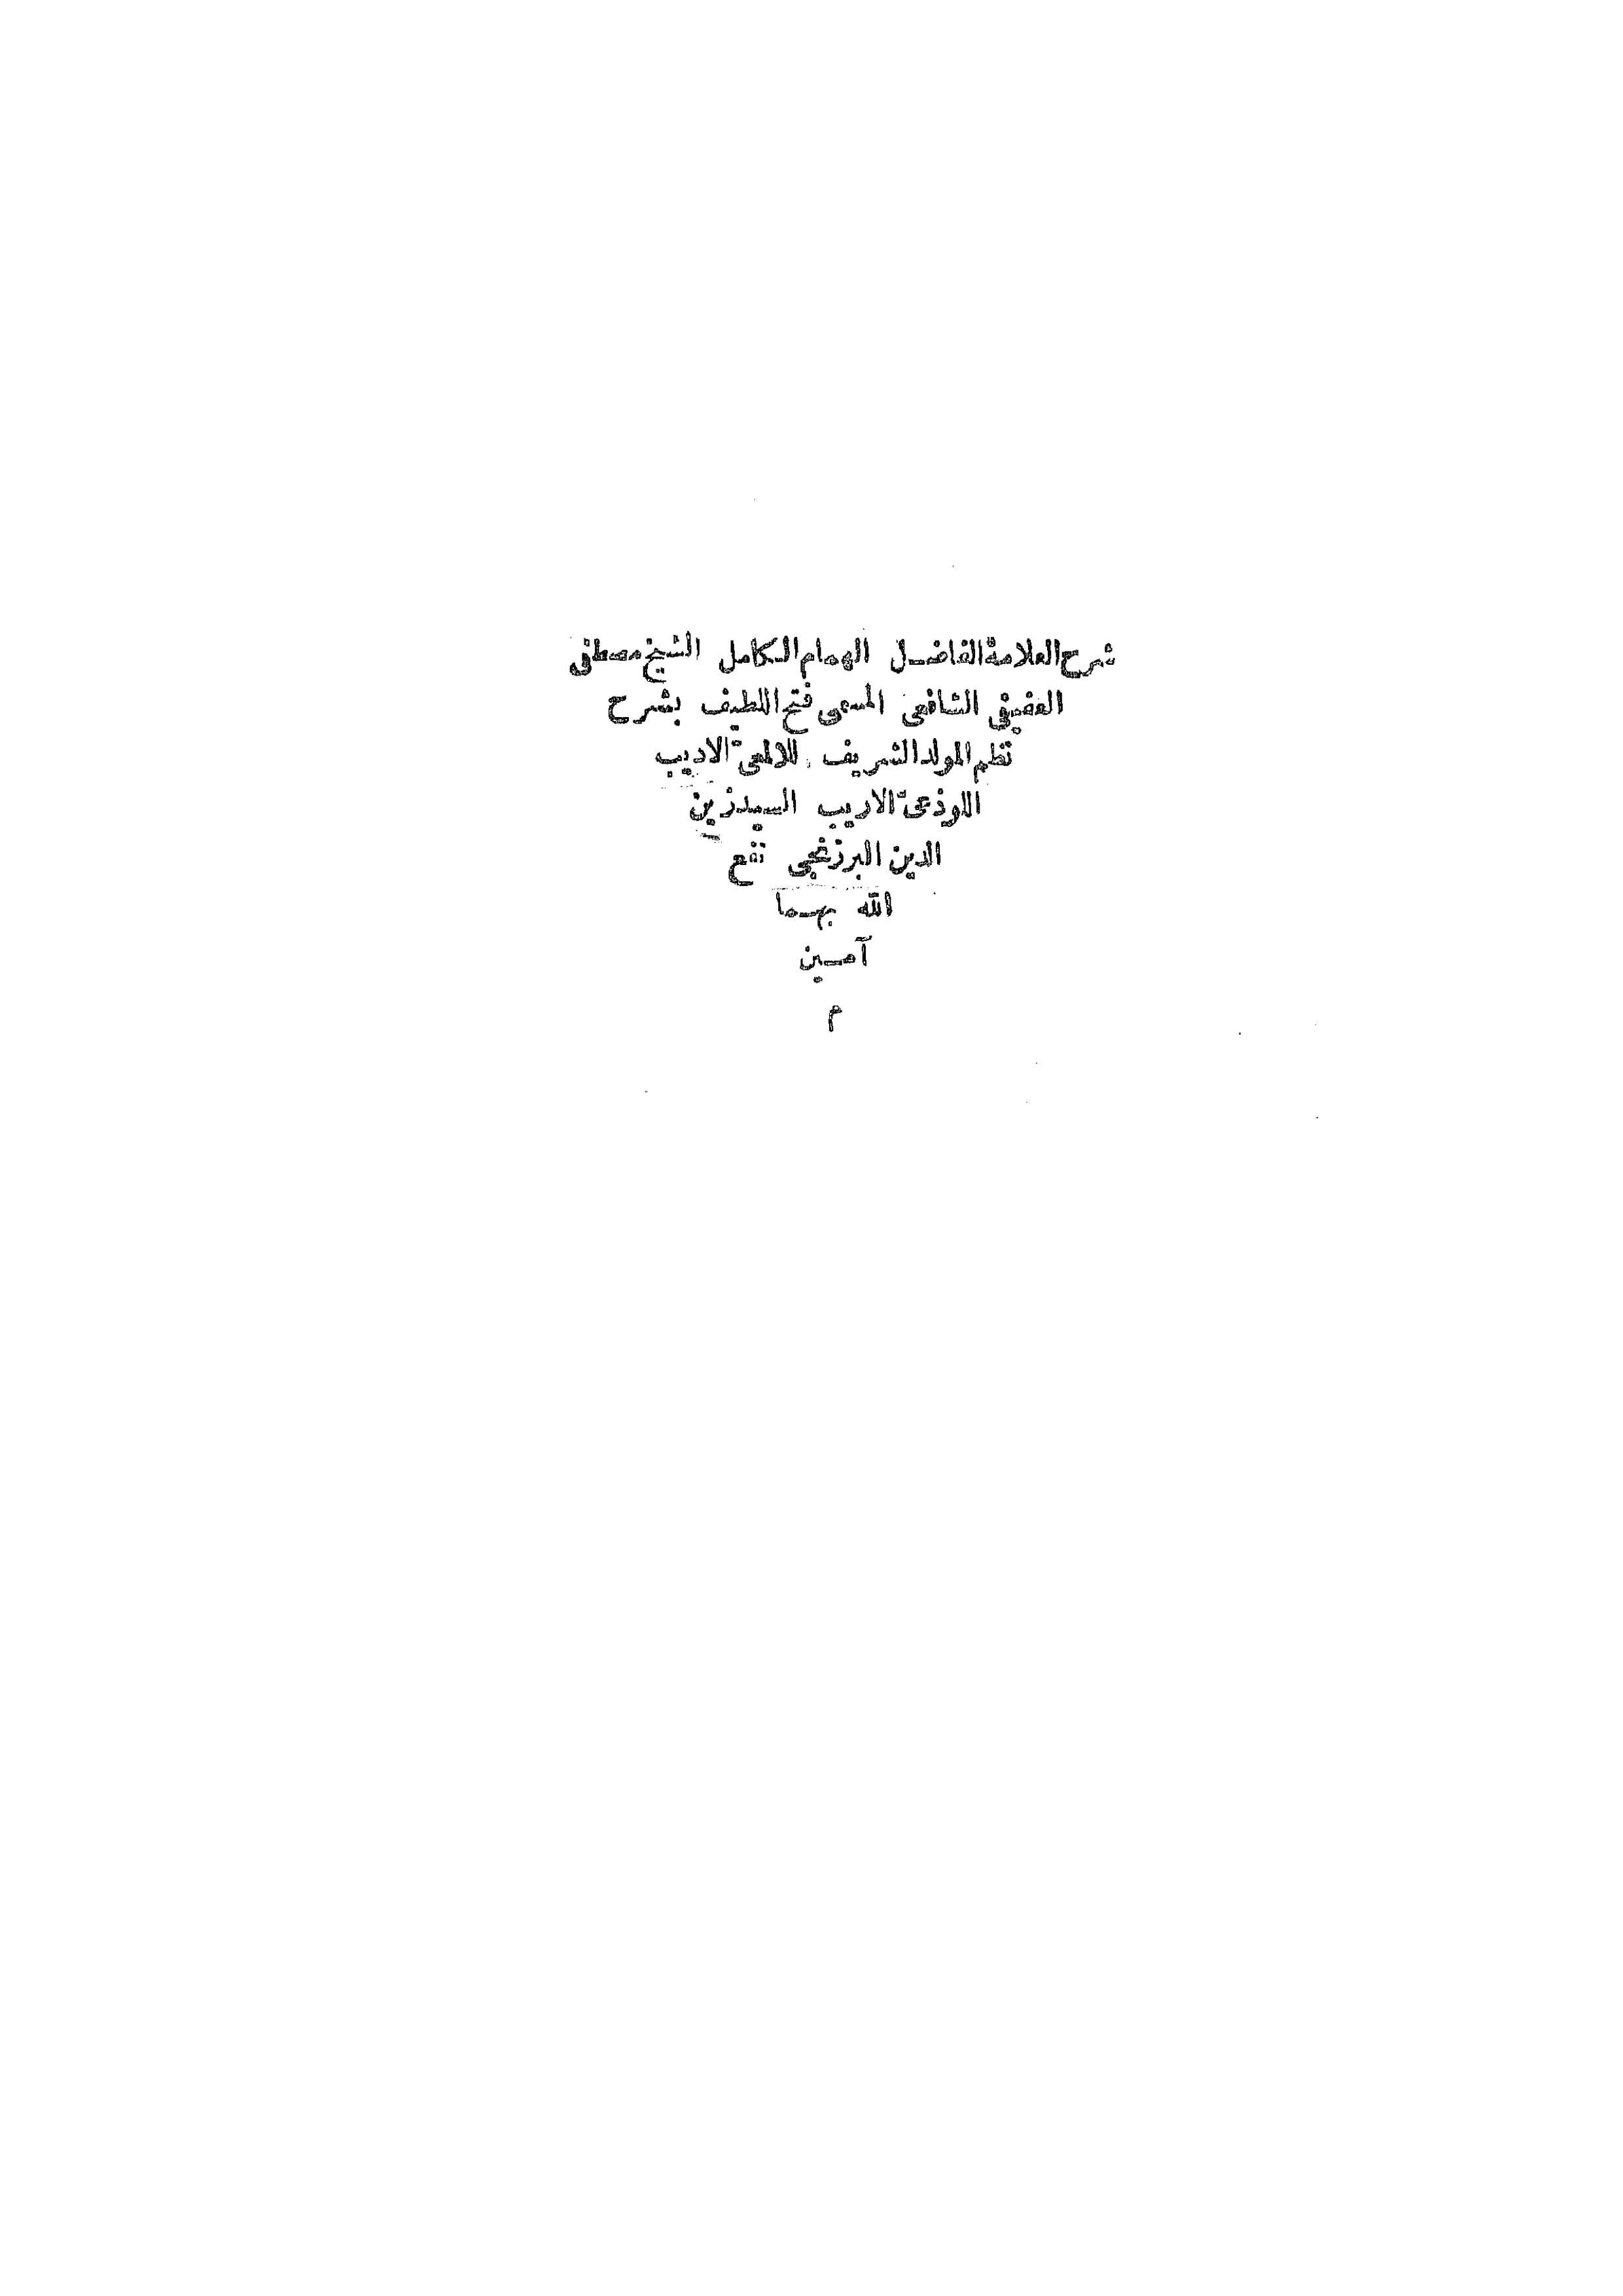 شرح العلامة الفاضل الهمام الكامل الشيخ مصطفى
العفيفي الشافعى المسمى فتح اللطيف بشرح
نظم المولد الشريف للالمعىّ الاديب
اللوذعىّ الاريب السيد زين
الدين البرزنجى نفع
الله بهما
آمين
م